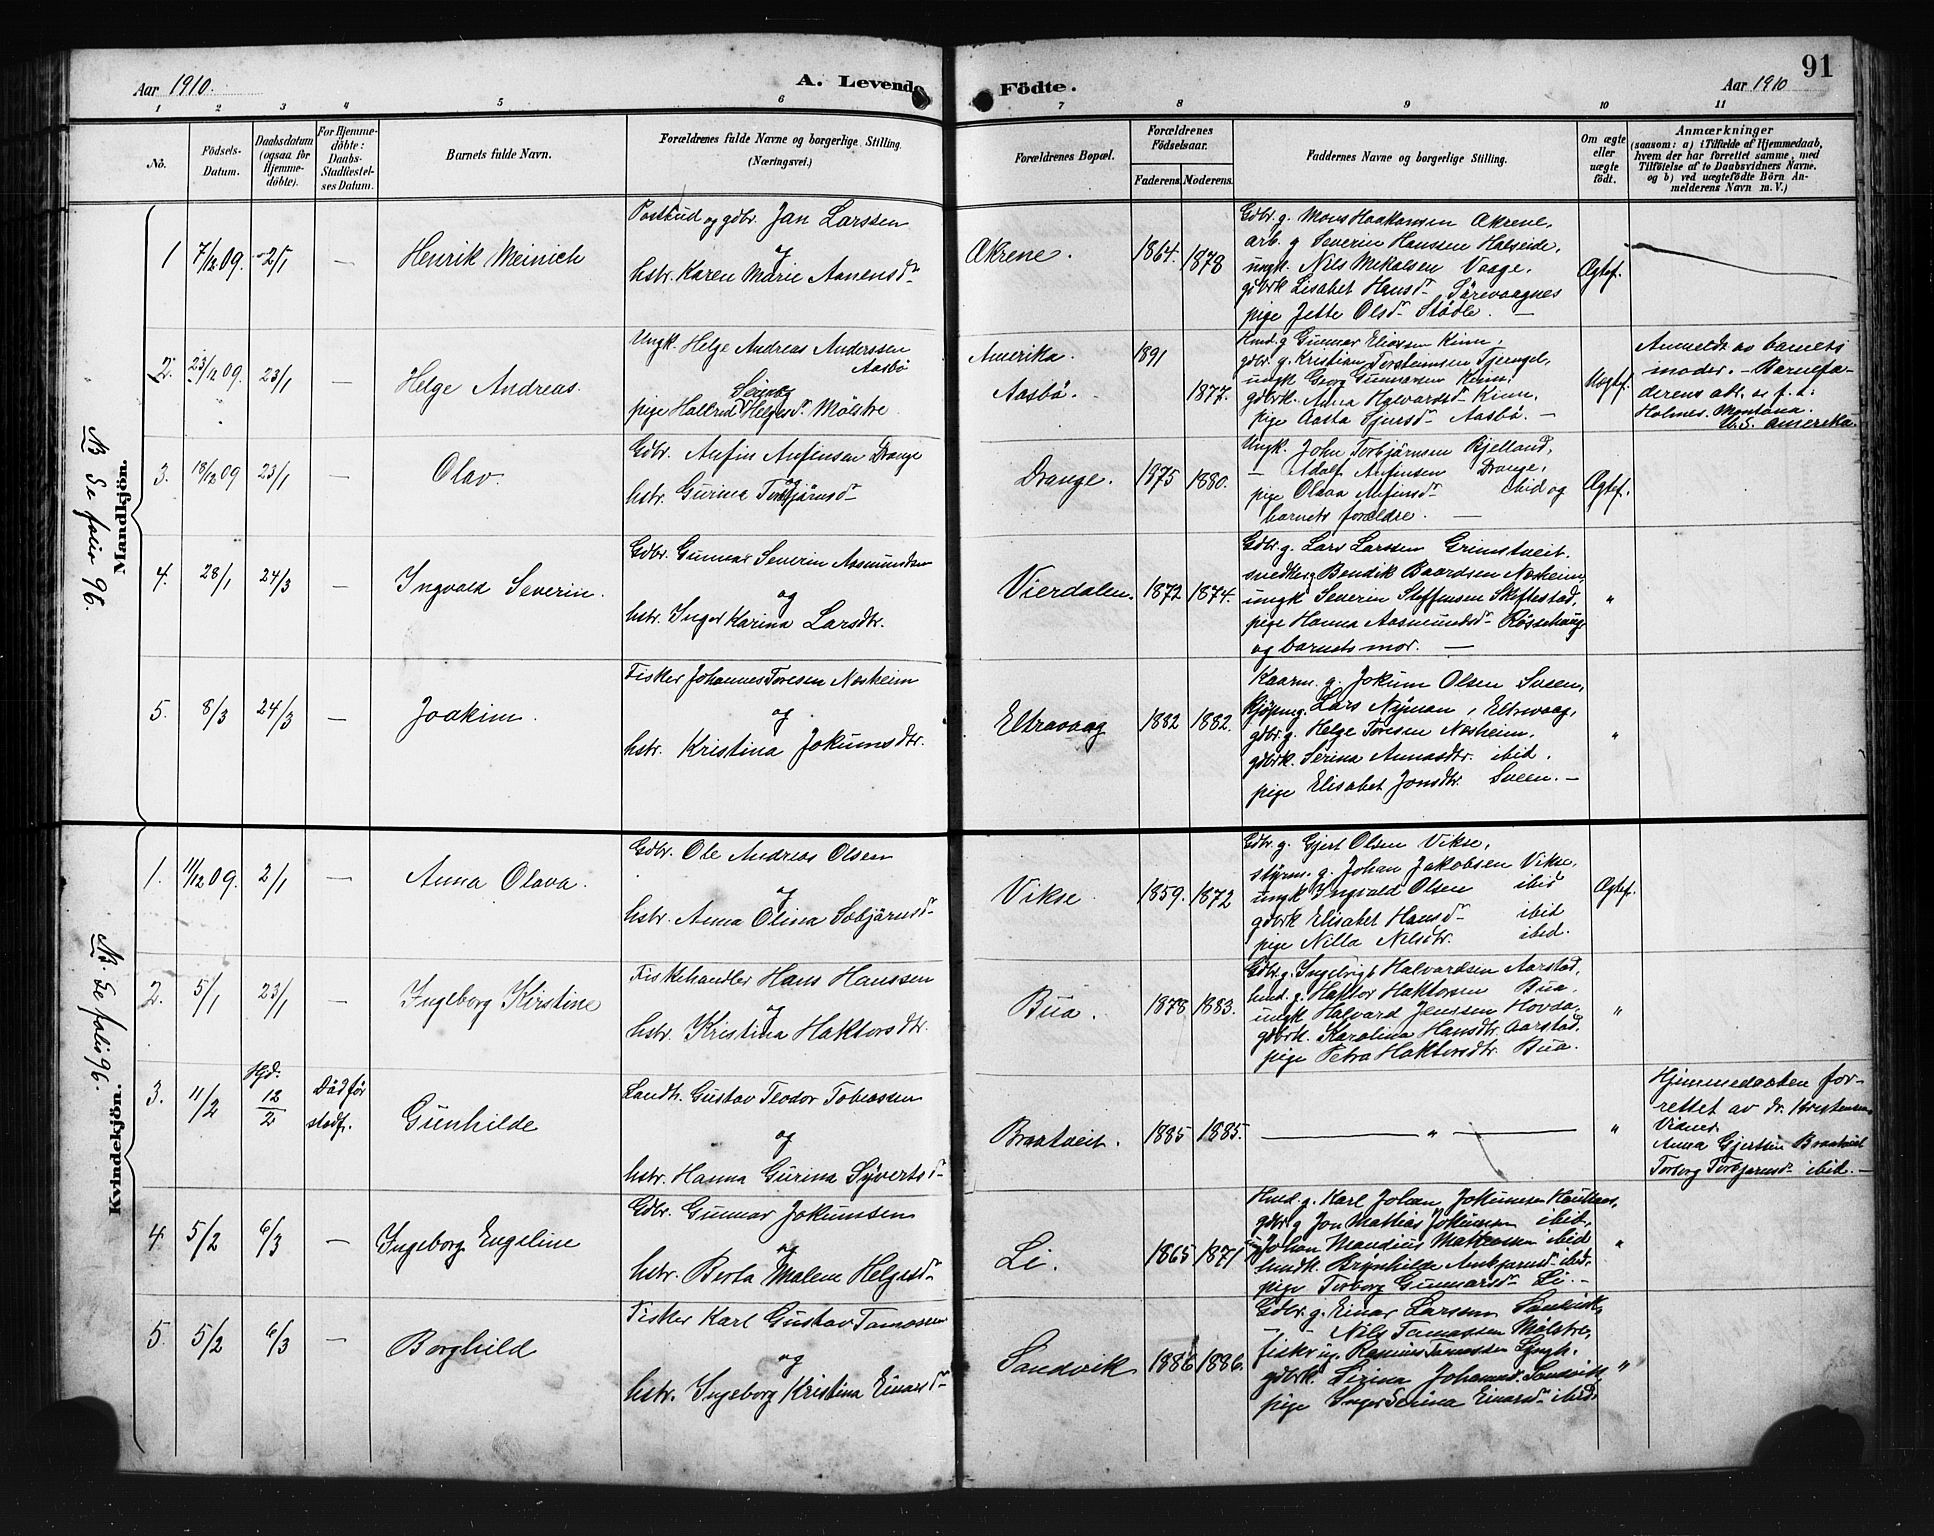 91
Aar 1910. A. Levende Födte. Aar 1910
1 2 3 4 5 6 7 8 9 10 11
No.
Födsels-
Datum.
Daabsdatum
(ogsaa for
Hjemme-
döbte).
For Hjemme-
döbte:
Daabs-
Stadfæstel-
ses Datum.
Barnets fulde Navn.
Forældrenes fulde Navne og borgerlige Stilling.
(Næringsvei.)
Forældrenes Bopæl.
Forældrenes
Födselsaar.
Faderens. Moderens.
Faddernes Navne og borgerlige Stilling.
Om ægte
eller
uægte
födt.
Anmærkninger
(saasom: a) i Tilfælde af Hjemmedaab,
hvem der har forrettet samme, med
Tilföielse af to Daabsvidners Navne.
og b) ved uægtefödte Börn An-
melderens Navn m. V.)
Mandkjön.
NB Se folio 96.
1 7/12 09. 2/1 — Henrik Meinich
Postbud og gdbr. Jan Larssen
og
hstr. Karen Marie Aanensdr
Akrene. 1864. 1878
Gdbr. g. Mons Haakonsen Akrene,
arb. g Severin Hanssen Halseide,
ungk. Nils Mikalsen Vaage,
gdbrk Lisabet Hansdr Sörevaagnes
pige Jette Olsdr Stödle. —
Ægtef.
2. 23/12 09. 23/1 — Helge Andreas.
Ungk. Helge Andreas Anderssen
Aasbö
og
pige Halbrid Helgesdr Mölstre.
Amerika.
Aasbö. 1891 1877.
Hmd. g Gunnar Eliassen Kinn,
gdbr. g. Kristian Torsteinsen Tjerngel,
ungk Georg Gunnarsen Kinn,
gdbrk. Anna Halvardsdr Kinn,
pige Aasta Sjursdr Aasbö. —
Uægtef.
Anmeldt av barnets
moder. — Barnefa-
derens
Holmes. Montana.
U.S. Amerika.
3. 18/12 09 23/1 — Olav.
Gdbr. Anfin Anfinsen Drange
og
hstr. Gurina Torbjörnsdr
Drange. 1875 1880.
Ungk. John Torbjörnsen Kjelland,
— Adolf Anfinsen Drange,
pige Olava Anfinsdr ibid og
barnets forældre. —
Ægtef.
4. 28/1 24/3 — Ingvald Severin.
Gdbr. Gunnar Severin Aasmundsen
og
hstr. Inger Karina Larsdtr.
Vierdalen. 1872 1874.
Gdbr. g. Lars Larssen Grimstveit.
snedker g Bendik Baardsen Norheim,
ungk Severin Steffensen Skiftestad,
pige Hanna Aasmundsdr
og barnets mor. —
"
5. 8/3 24/3 — Joakim.
Fisker Johannes Toresen Norheim
og
hstr. Kristina Jokumsdtr.
Eltravaag 1882 1882.
Kaarm. g. Jokum Olsen Sveen,
kjöpm g. Lars Nyman, Eltravaag,
gdbr. g. Helge Toresen Norheim,
gdbrk. Serina Annasdtr. ibid.
pige Elisabet Jonsdtr. Sveen. —
"
Kvindekjön.
NB. Se folio 96.
1. 11/12 09. 2/1 — Anna Olava.
Gdbr. Ole Andreas Olsen
og
hstr. Anna Olina Sebjörnsdr
Vikse. 1859. 1872
Gdbr. g. Gjert Olsen Vikse,
styrm. g. Johan Jakobsen Vikse,
ungk Ingvald Olsen ibid
gdbrk Elisabet Hansdr ibid
pige Nilla Nilsdtr. ibid.
Ægtef.
2. 5/1 23/1 — Ingeborg Kirstine
Fiskehandler Hans Hanssen
og
hstr. Kristina Haktorsdtr.
Bua. 1878 1883.
Gdbr. g. Ingebrigt Halvardsen Aarstad,
hmd. g. Haktor Haktorsen Bua.
ungk Halvard Jenssen Hovda,
gdbrk. Karolina Hansdtr. Aarstad.
pige Petra Haktorsdtr. Bua.
"
3. 11/2 Hjd. 12/2 Död för
stadf. Gunhilde
Landh. Gustav Teodor Tobiassen
og
hstr. Hanna Gurina Syvertsdr
Braatveit. 1885 1885.
— " —
"
Hjemmedaaben for-
rettet av dr. Kristensen
Vidner
Anna Gjertsen Braatveit
Torborg Torbjörnsdr ibid. —
4. 5/2 6/3 — Ingeborg Engeline
Gdbr. Gunnar Jokumsen
og
hstr. Berta Malene Helgesdr
Li. 1865 1871
Hmd. g. Karl Johan Jokumsen
gdbr g Jon Mattias Jokumsen ibid,
ungk Johan Mandius Mattiassen ibid
hmdk. Brynhilda ibid,
pige Torborg Gunnarsdr Li. —
"
5. 5/2 6/3 — Borghild
Fisker Karl Gustav Tomassen
og
hstr. Ingeborg Kristina Einarsdr
Sandvik 1886 1886.
Gdbr. g. Einar Larssen Sandvik,
— Nils Tomassen Mölstre,
fisker ug. Rasmus Tomassen
gdbrk. Serina Sandvik,
pige Inger Serina Einarsdr ibid.
"